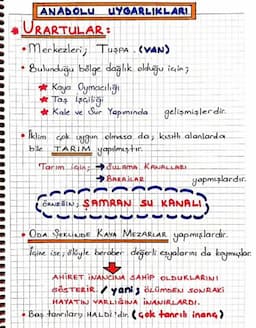 ANADOLU UYGARLIKLARI
URARTULAR:
• Merkezleri; TUŞPA. (VAN)
• Bulunduğu bölge dağlık olduğu için;
★ Kaya Oymacılığı
★ Taş İşçiliği
★ Kale ve Sur Yapımında gelişmişlerdir.
• İklim çok uygun olmasa da; kısıtlı alanlarda
bile TARIM yapılmıştır.
Tarım için; → SULAMA KANALLARI
→ BARAJLAR yapmışlardır.
ÖRNEĞİN; ŞAMRAN SU KANALI
• ODA ŞEKLİNDE KAYA MEZARLAR yapmışlardır.
İçine ise; ölüyle beraber değerli eşyalarını da koymuşlar.
AHİRET İNANCINA SAHİP OLDUKLARINI
GÖSTERİR. / yani; ÖLÜMDEN SONRAKİ
HAYATIN VARLIĞINA İNANIRLARDI.
• Baş tanrıları HALDİ'dir. (çok tanrılı inanç)